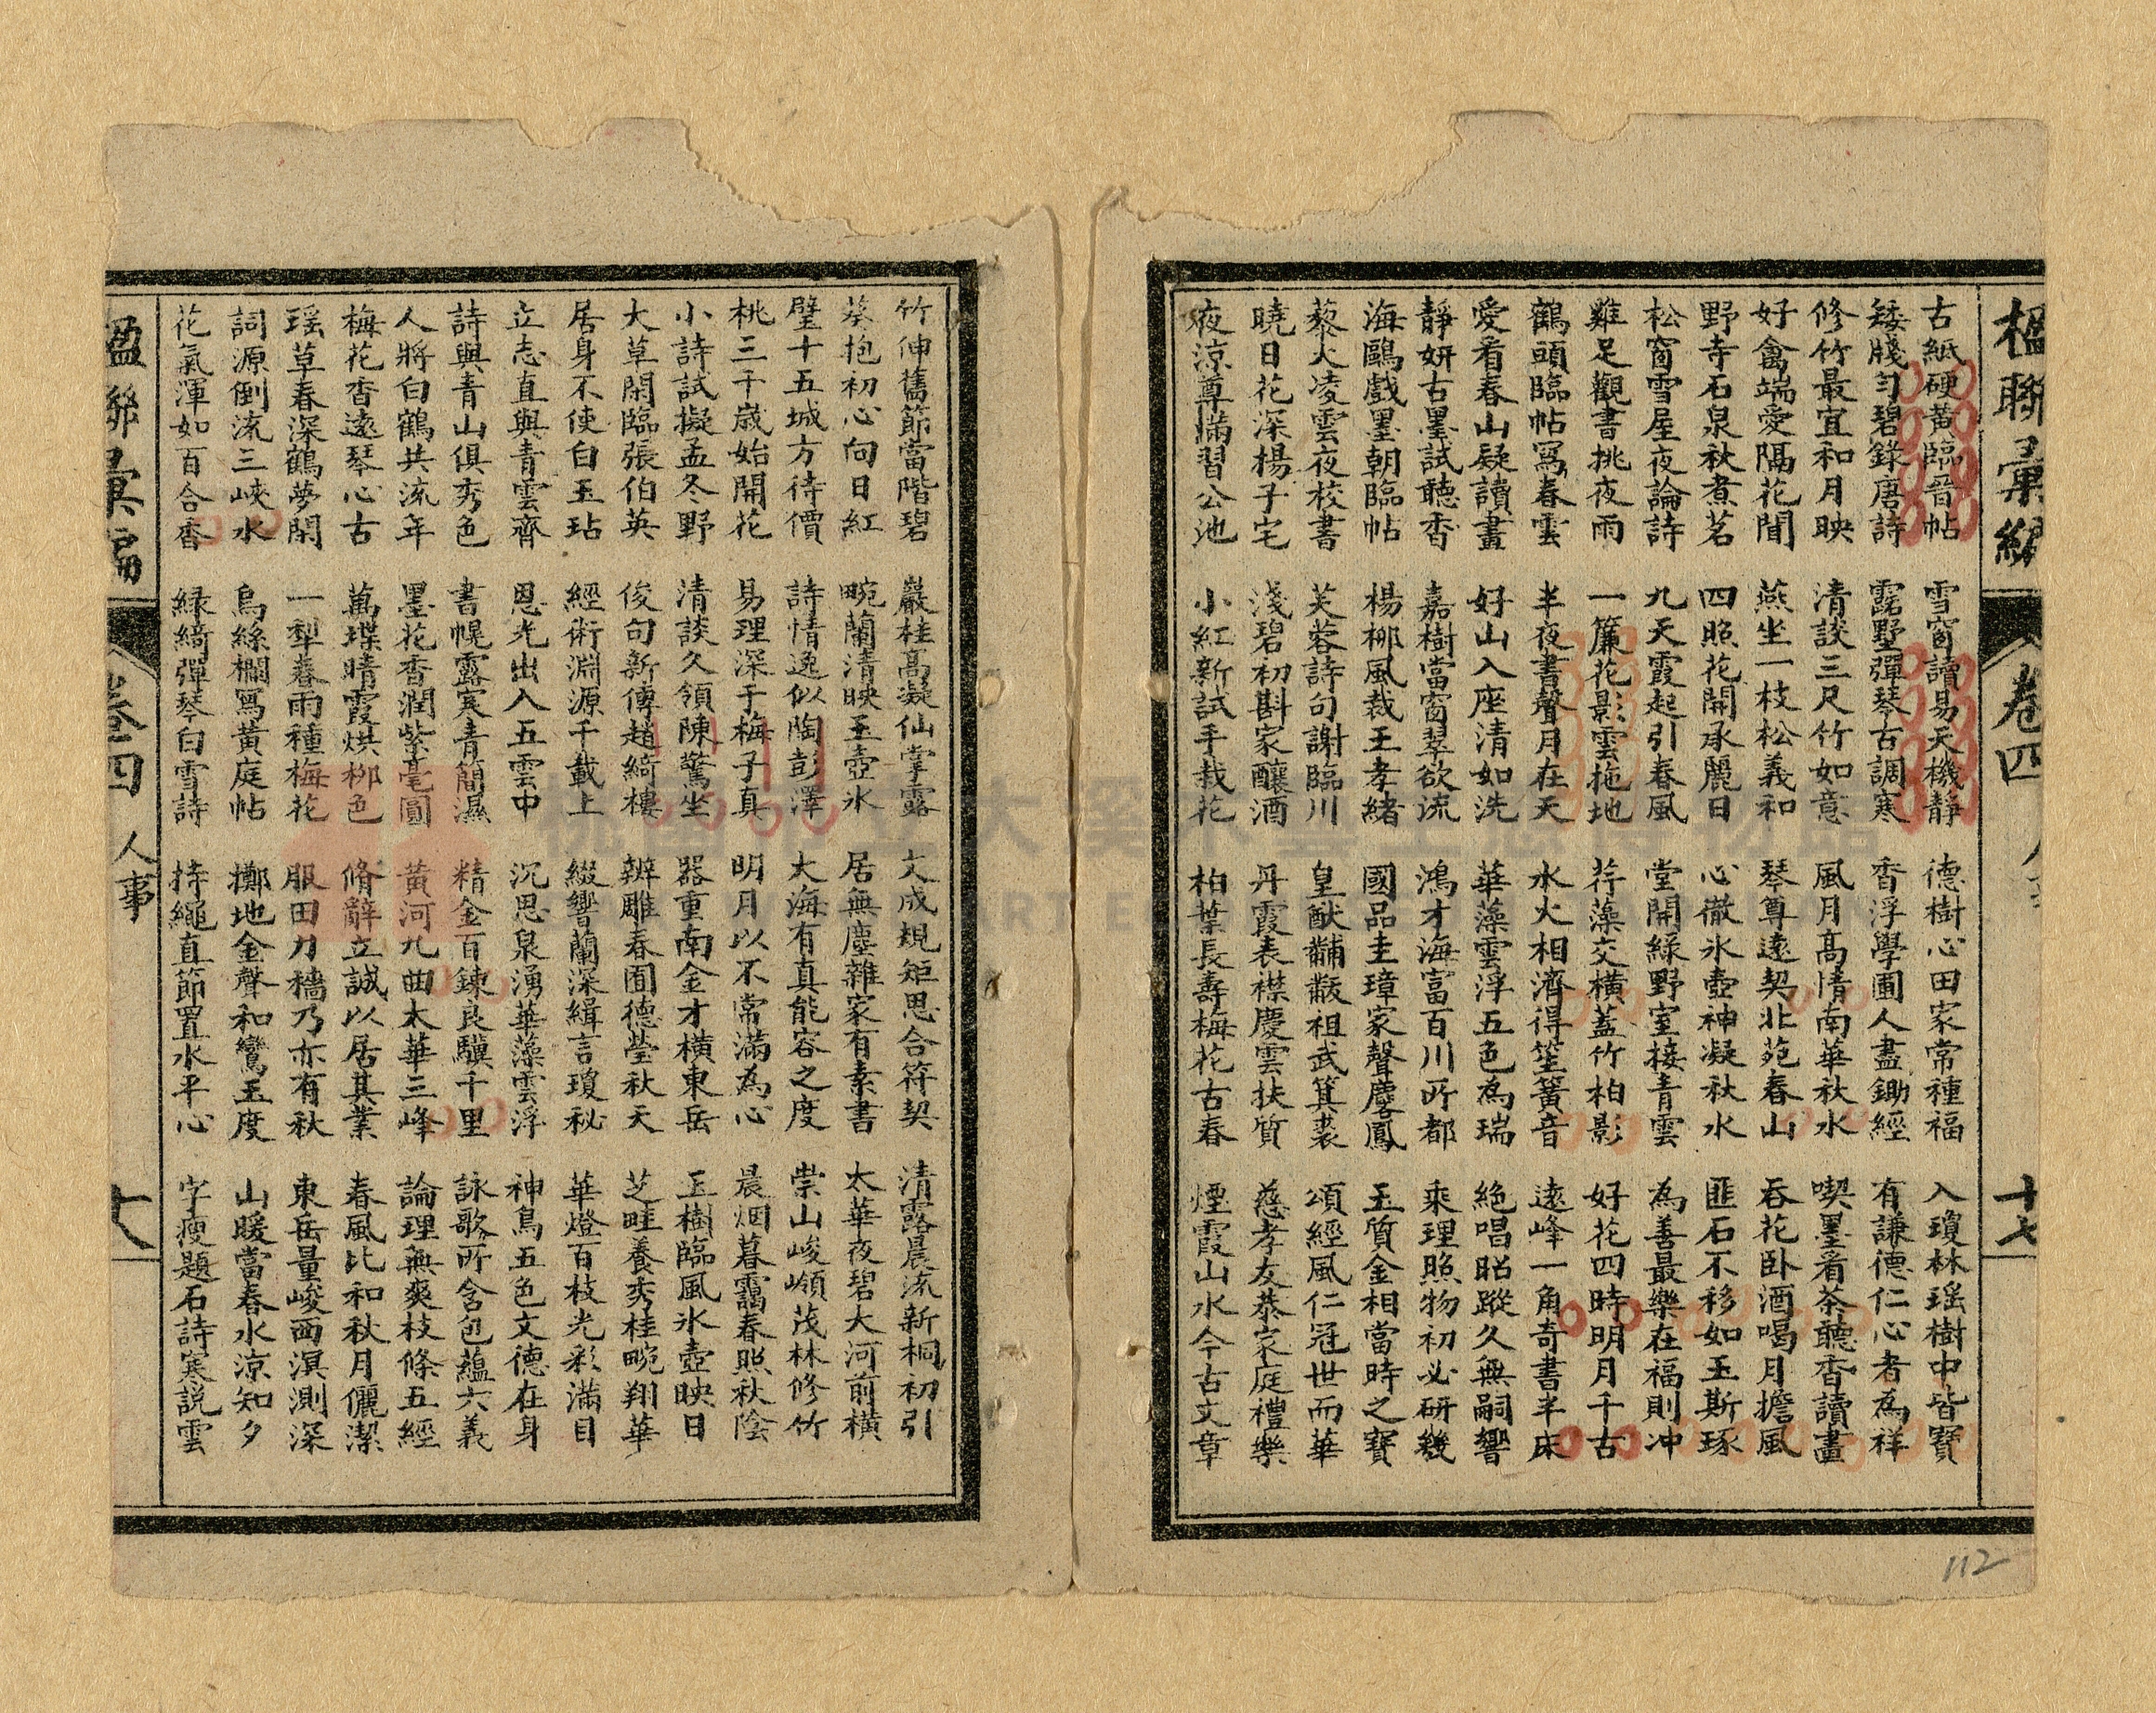 楹聯彙編 卷四 十七
古紙硬黃臨晉帖 雪窗讀易天機靜 德樹心田家常種福 入瓊林瑶樹中皆寶
矮牋匀碧錄唐詩 露墅彈琴古調寒 香浮學圃人盡鋤經 有謙德仁心者為祥
修竹最宜和月映 清談三尺竹如意 風月高情南華秋水 喫墨看茶聽香讀畫
好禽端愛隔花聞 燕坐一枝松義和 琴尊遠契北苑春山 吞花卧酒喝月擔風
野寺石泉秋煮茗 四照花開承麗日 心徹氷壺神凝秋水 匪石不移如玉斯琢
松窗雪屋夜論詩 九天霞起引春風 堂開綠野室接青雲 為善最樂在福則冲
雞足觀書挑夜雨 一簾花影雲拖地 荇藻交橫蓋竹柏影 好花四時明月千古
鶴頭臨帖寫春雲 半夜書聲月在天 水火相濟得笙簧音 遠峰一角奇書半床
愛看春山疑讀畫 好山入座清如洗 華藻雲浮五色為瑞 絕唱昭蹤久無嗣響
靜妍古墨試聽香 嘉樹當窗翠欲流 鴻才海富百川所都 乘理照物初必研幾
海鷗戲墨朝臨帖 楊柳風裁王孝緒 國品圭璋家聲麐鳳 玉質金相當時之寶
藜火凌雲夜校書 芙蓉詩句謝臨川 皇猷黼黻祖武箕裘 頌經風仁冠世而華
曉日花深楊子宅 淺碧初斟家釀酒 丹霞表襟慶雲扶質 慈孝友恭家庭禮樂
夜涼尊滿習公池 小紅新試手栽花 柏葉長壽梅花古春 煙霞山水今古文章
竹伸舊節當階碧 巖桂高凝仙掌露 大成規矩思合符契 清露晨流新桐初引
葵抱初心向日紅 畹蘭清映玉壺氷 居無塵雜家有素書 太華夜碧大河前橫
璧十五城方待價 詩情逸似陶彭澤 大海有真能容之度 崇山峻嶺茂林修竹
桃三千歲始開花 易理深于梅子真 明月以不常滿為心 晨烟暮靄春照秋陰
小詩試擬孟冬野 清談久領陳驚坐 器重南金才橫東岳 玉樹臨風氷壺映日
大草閑臨張伯英 俊句新傳趙綺樓 辨雕春囿德瑩秋天 芝畦養秀桂畹翔華
居身不使白玉玷 經術淵源千載上 綴響蘭深緝言瓊秘 華燈百枝光彩滿目
立志直與青雲齊 恩光出入五雲中 沉思泉湧華藻雲浮 神鳥五色文德在身
詩與青山俱秀色 書幌露寒青簡濕 精金百鍊良驥千里 詠歌所含包蘊六義
人將白鶴共流年 墨花香潤紫毫圓 黃河九曲太華三峰 論理無爽枝條五經
梅花香遠琴心古 萬堞晴霞烘柳色 脩辭立誠以居其業 春風比和秋月儷潔
瑶草春深鶴夢閑 一犁春雨種梅花 服田力穡乃亦有秋 東岳量峻西溟測深
詞源倒流三峽水 烏絲欄寫黃庭帖 擲地金聲和鸞玉度 山暖當春水涼知夕
花氣渾如百合香 綠綺彈琴白雪詩 持繩直節置水平心 字瘦題石詩寒説雲
楹聯彙編 卷四 人事 十八
112